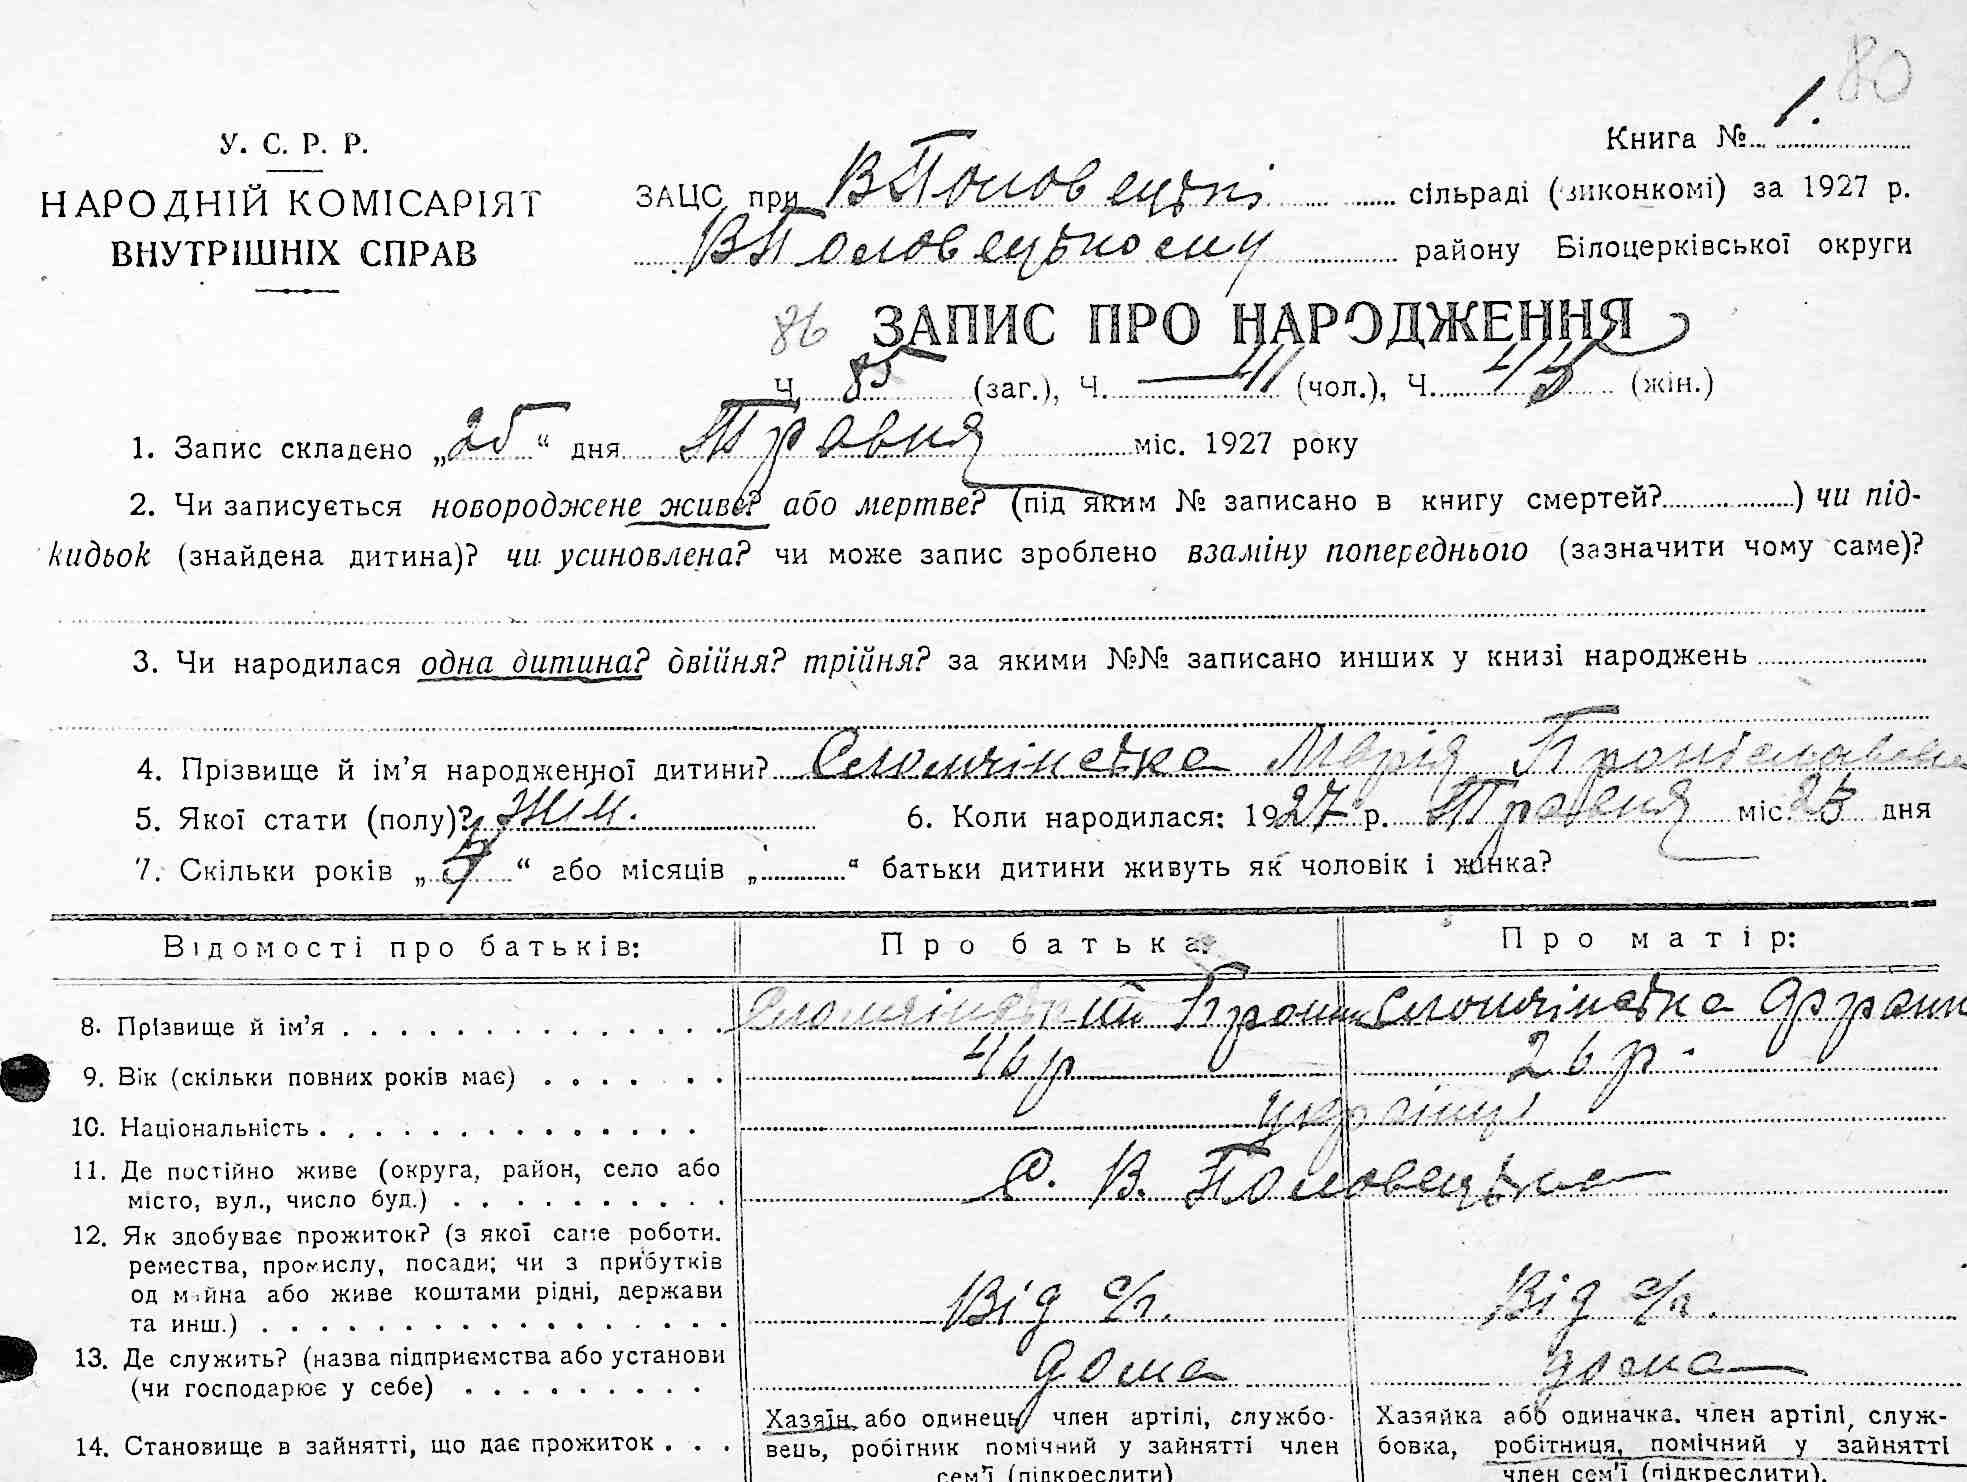 80
Книга № 1.
У. С. Р. Р.
НАРОДНІЙ КОМІСАРІЯТ
ВНУТРІШНІХ СПРАВ
ЗАЦС при ВПоловецькі сільраді (виконкомі) за 1927 р.
ВПоловецькому району Білоцерківської округи
86 ЗАПИС ПРО НАРОДЖЕННЯ
Ч. 85 (заг.), Ч. — 41 (чол.), Ч. 45 (жін.)
1. Запис складено „25“ дня Травня міс. 1927 року
2. Чи записується новороджене живе? або мертве? (під яким № записано в книгу смертей?) чи під-
кидьок (знайдена дитина)? чи усиновлена? чи може запис зроблено взаміну попереднього (зазначити чому саме)?
3. Чи народилася одна дитина? двійня? трійня? за якими №№ записано инших у книзі народжень
4. Прізвище й ім'я народженної дитини? Сломчінська Марія Броніславовна
5. Якої стати (полу)? Жін. 6. Коли народилася: 1927 р. Травня міс. 23 дня
7. Скільки років „5“ або місяців „“ батьки дитини живуть як чоловік і жінка?
Відомості про батьків: Про батька: Про матір:
8. Прізвище й ім'я Сломчінський Брони Сломчінська Франц
9. Вік (скільки повних років має) 46 р 26 р.
10. Національність українці
11. Де постійно живе (округа, район, село або
місто, вул., число буд.) С. В. Половецьке
12. Як здобуває прожиток? (з якої саме роботи.
ремества, промислу, посади; чи з прибутків
од майна або живе коштами рідні, держави
та инш.) Від с/г. Від с/г.
13. Де служить? (назва підприємства або установи
(чи господарює у себе) дома дома
14. Становище в зайнятті, що дає прожиток
Хазяїн або одинець, член артілі, службо-
вець, робітник помічний у зайнятті член
сем'ї (підкреслити)
Хазяйка або одиначка. член артілі, служ-
бовка, робітниця, помічний у зайнятті
член сем'ї (підкреслити).